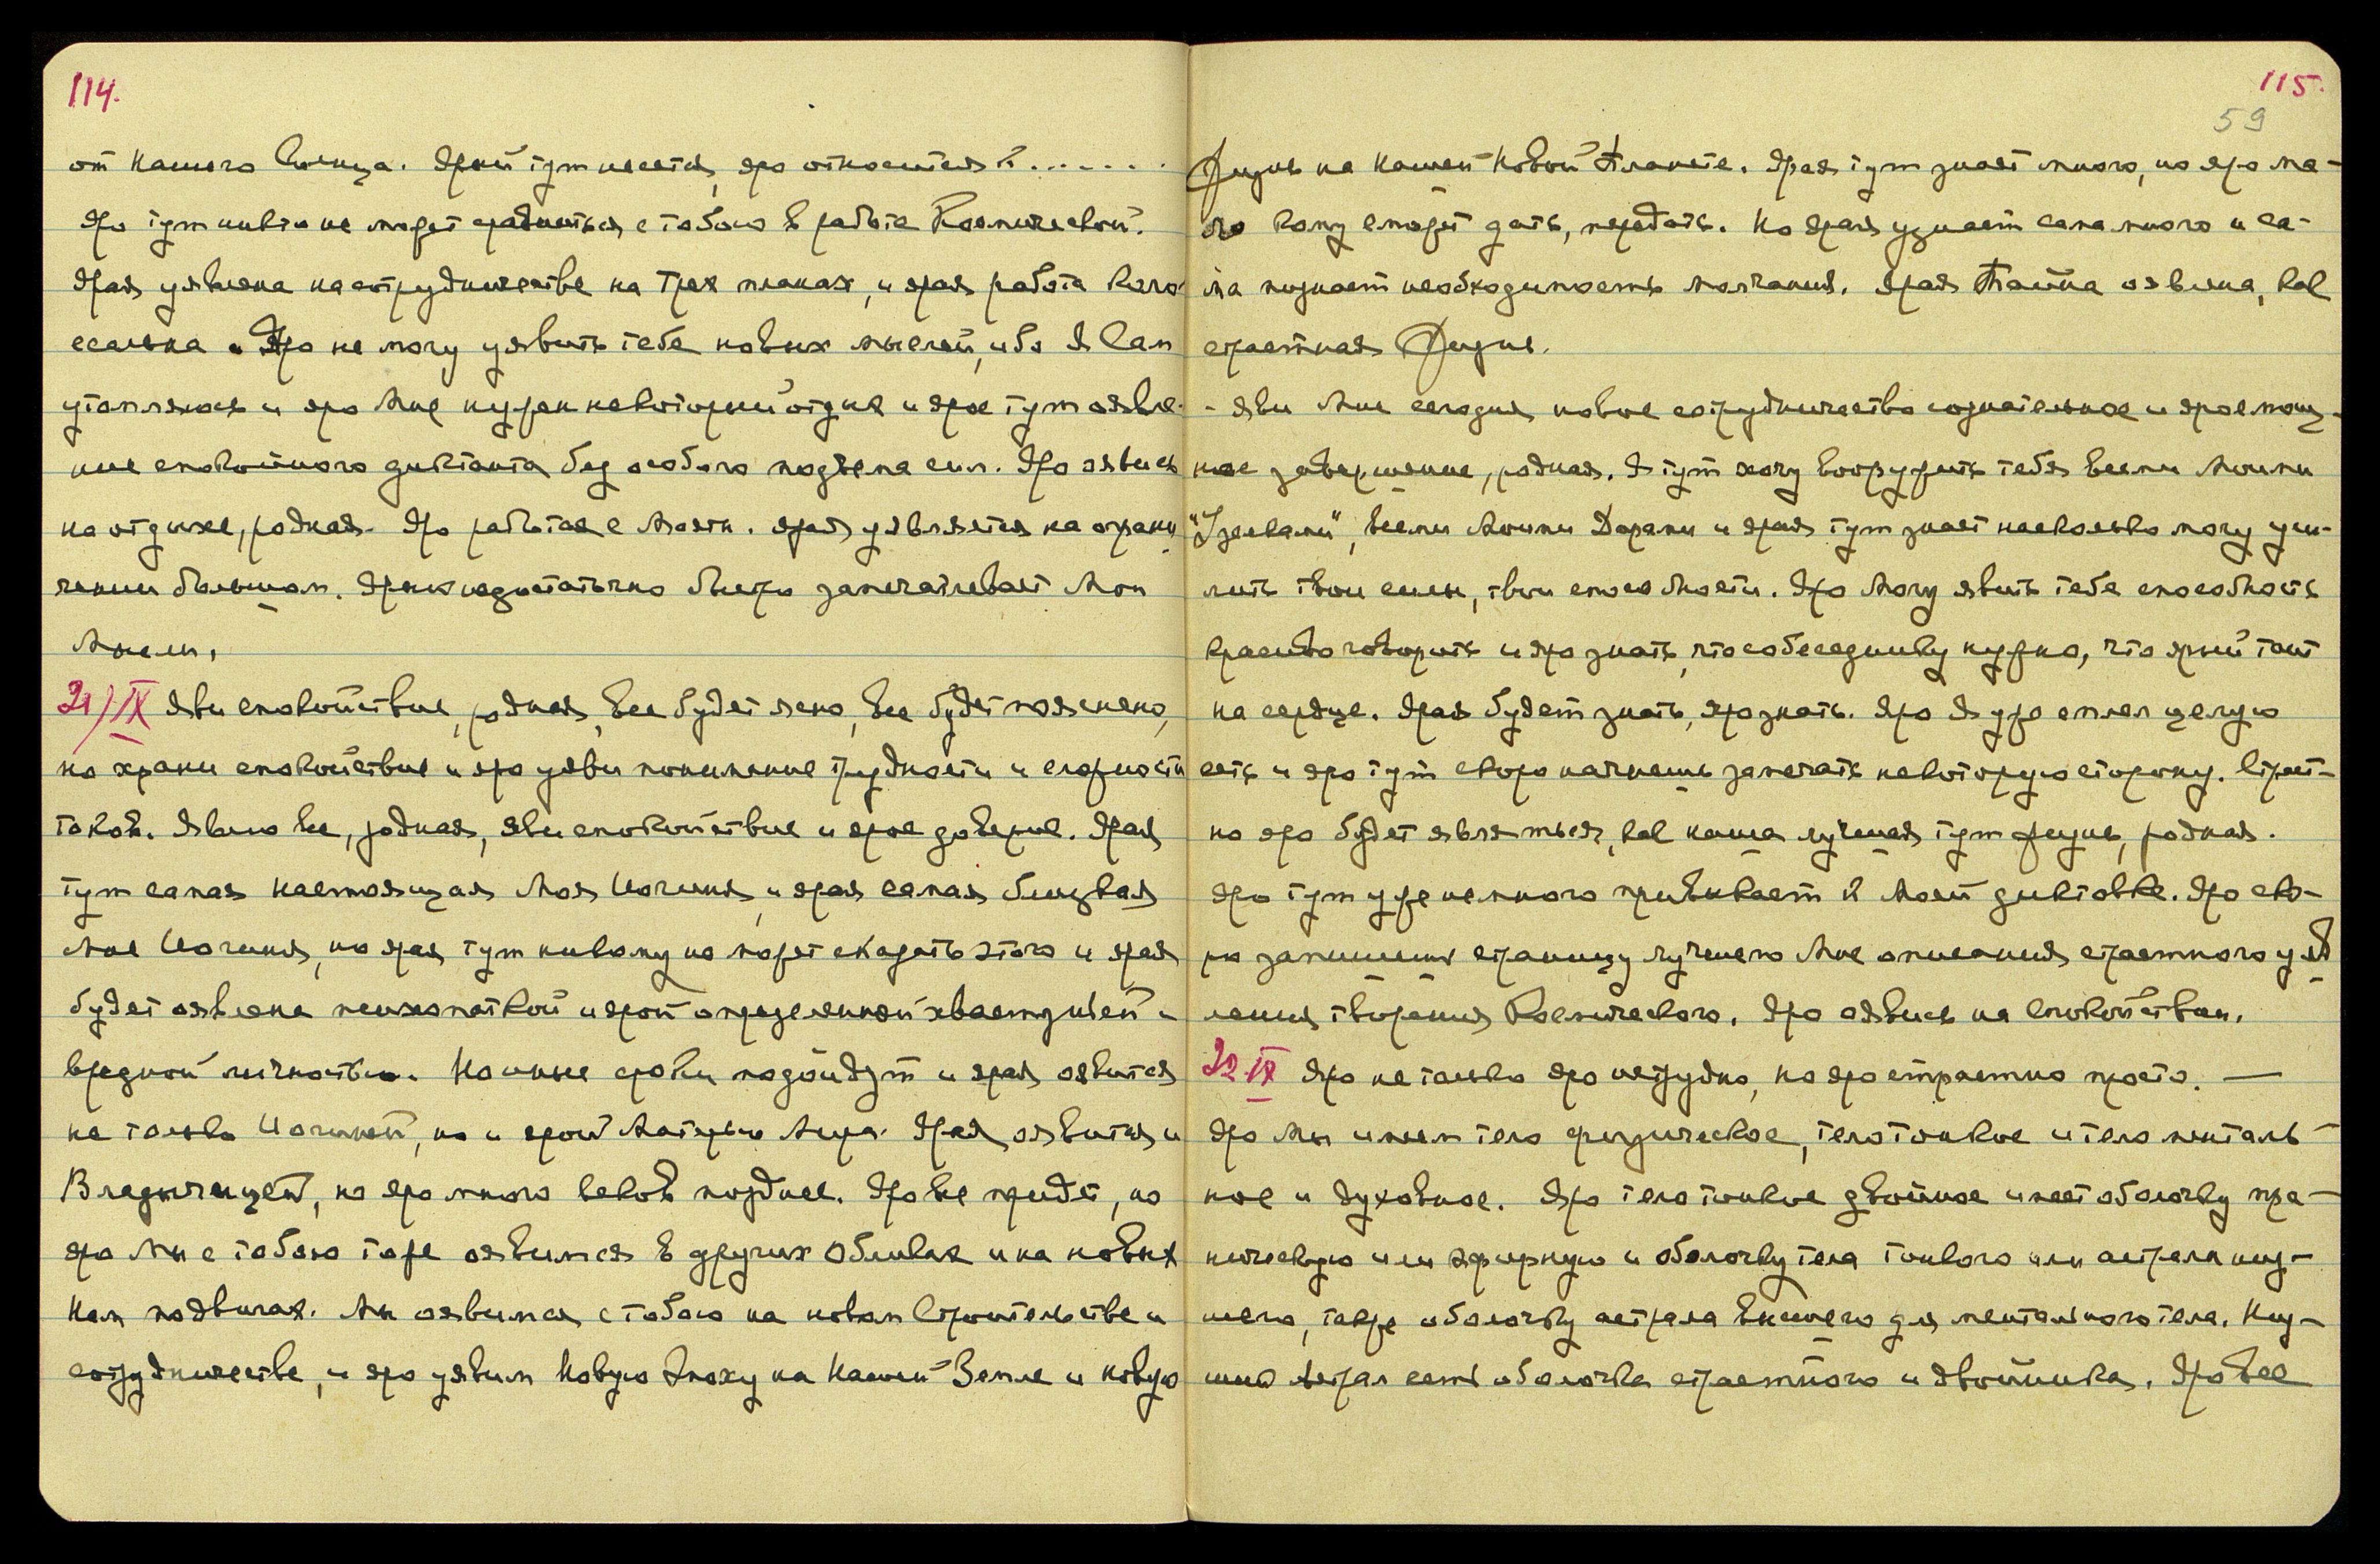 114.
от Нашего Солнца. Ярый тут несется, яро относится к .......
Яро тут никто не может сравниться с тобою в работе Космической.
Ярая уявлена на сотрудничестве на трех планах, и ярая работа коло-
ссальна. Яро не могу уявить тебе новых мыслей, ибо Я Сам
утомляюсь и яро Мне нужен некоторый отдых и ярое тут оявле-
ние спокойного диктанта без особого подъема сил. Яро оявись
на отдыхе, родная. Яро работай с Моим. Ярая уявляется на ограни
чении большом. Ярый недостаточно быстро запечатлевает Мои
Мысли.
21/IX Яви спокойствие, родная, все будет ясно, все будет пояснено,
но храни спокойствие и яро уяви понимание трудности и сложности
токов. Явлю все, родная, яви спокойствие и ярое доверие. Ярая
тут самая настоящая Моя Иогиня, и ярая самая близкая
Мне Иогиня, но ярая тут никому не может сказать этого и ярая
будет оявлена психопаткой и ярой определенной хвастуньей и
вредной личностью. Но иные сроки подойдут и ярая оявится
не только Иогиней, но и ярой Матерью Мира. Ярая оявится и
Владычицей, но яро много веков позднее. Яро все придет, но
яро Мы с тобою тоже оявимся в других Обликах и на новых
Нам подвигах. Мы оявимся с тобою на новом Строительстве и
сотрудничестве, и яро уявим Новую Эпоху на Нашей Земле и новую
115.
59
Жизнь на Нашей Новой Планете. Ярая тут знает много, но яро ма-
ло кому сможет дать, передать. Но ярая узнает сама много и са-
ма познает необходимость молчания. Ярая Тайна оявлена, как
страстная Жизнь.
- Яви Мне сегодня новое сотрудничество сознательное и ярое мощ-
ное завершение, родная. Я тут хочу вооружить тебя всеми Моими
"Узелками", всеми Моими Дарами и ярая тут знает насколько могу уси-
лить твои силы, твои способности. Яро Могу явить тебе способность
красиво говорить и яро знать, что собеседнику нужно, что ярый таит
на сердце. Ярая будет знать, яро знать. Яро Я уже сплел целую
сеть и яро тут скоро начнешь замечать некоторую сторону. Страст-
но яро будет являться, как наша лучшая тут жизнь, родная.
Яро тут уже немного привыкает к Моей диктовке. Яро ско-
ро запишешь страницу лучшего Мне описания страстного уяв
ления творения Космического. Яро оявись на спокойствии.
22 IX Яро не только яро нетрудно, но яро страстно просто. —
Яро Мы имеем тело физическое, тело тонкое и тело менталь-
ное и духовное. Яро тело тонкое двойное имеет оболочку пра-
ническую или эфирную и оболочку тела тонкого или астрала низ-
шего, также оболочку астрала высшего для ментального тела. Низ-
ший Астрал есть оболочка страстного и двойника. Яро все